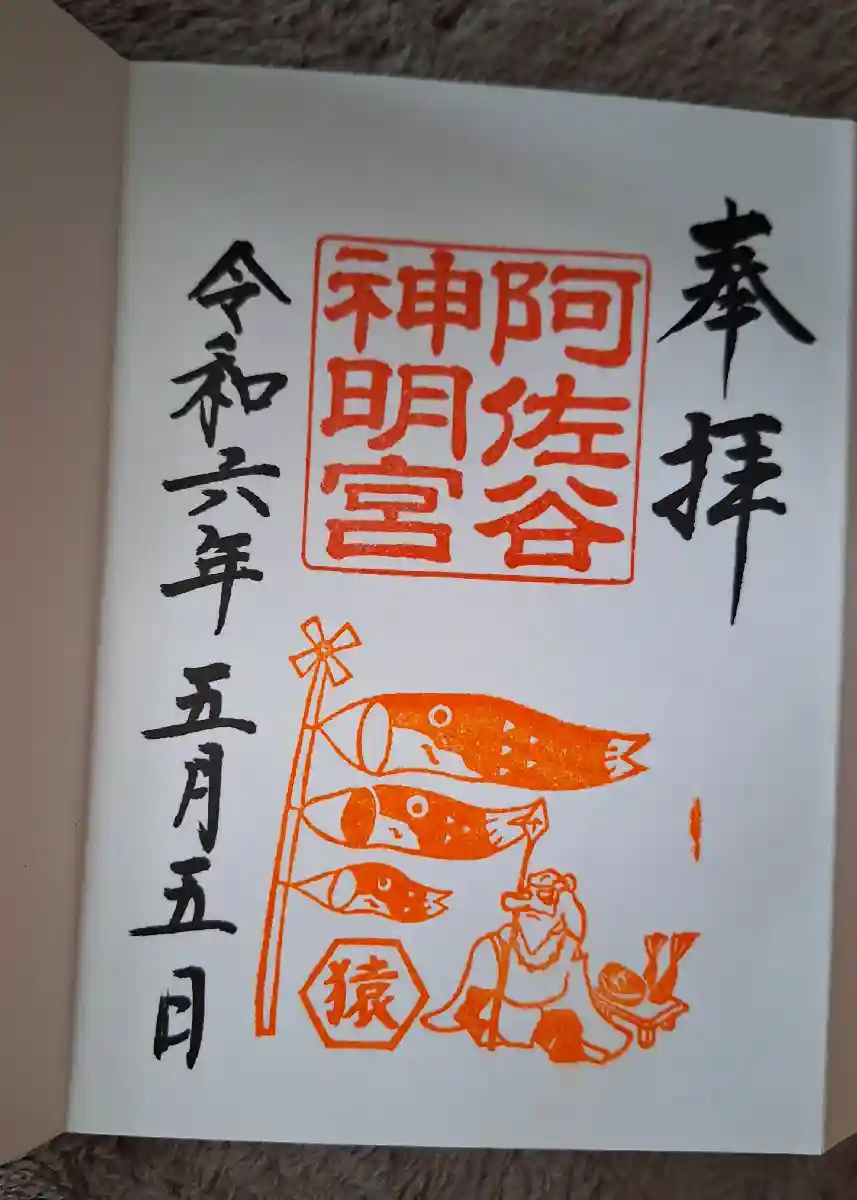 奉拝
阿佐谷
神明宮
猿
令和六年五月五日